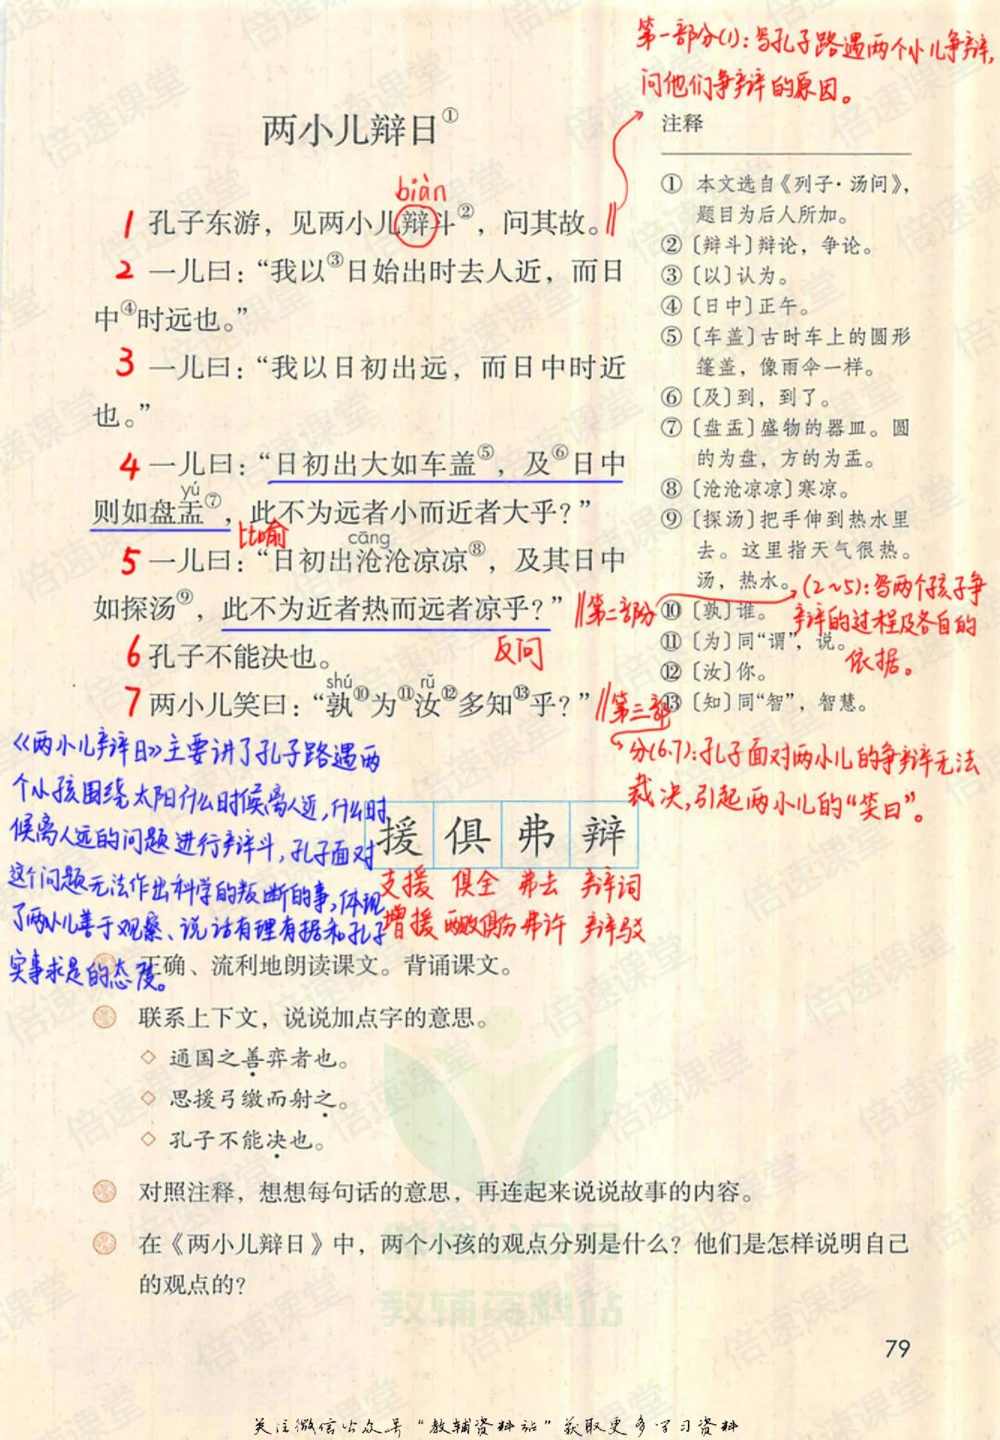 第一部分(1):写孔子路遇两个小儿争辩,
问他们争辩的原因。
两小儿辩日①
biàn
1 孔子东游，见两小儿辩斗②，问其故。
2 一儿曰：“我以③日始出时去人近，而日
中④时远也。”
3 一儿曰：“我以日初出远，而日中时近
也。”
4 一儿曰：“日初出大如车盖⑤，及⑥日中
yú
则如盘盂⑦，此不为远者小而近者大乎？”
比喻
cāng
5 一儿曰：“日初出沧沧凉凉⑧，及其日中
如探汤⑨，此不为近者热而远者凉乎？”
第二部分
(2~5):写两个孩子争
辩的过程及各自的
依据。
反问
6 孔子不能决也。
shú rǔ
7 两小儿笑曰：“孰⑩为⑪汝⑫多知⑬乎？”
第三部
分(6.7):孔子面对两小儿的争辩无法
裁决,引起两小儿的“笑曰”。
注释
① 本文选自《列子·汤问》，
题目为后人所加。
②〔辩斗〕辩论，争论。
③〔以〕认为。
④〔日中〕正午。
⑤〔车盖〕古时车上的圆形
篷盖，像雨伞一样。
⑥〔及〕到，到了。
⑦〔盘盂〕盛物的器皿。圆
的为盘，方的为盂。
⑧〔沧沧凉凉〕寒凉。
⑨〔探汤〕把手伸到热水里
去。这里指天气很热。
汤，热水。
⑩〔孰〕谁。
⑪〔为〕同“谓”，说。
⑫〔汝〕你。
⑬〔知〕同“智”，智慧。
《两小儿辩日》主要讲了孔子路遇两
个小孩围绕太阳什么时候离人近,什么时
候离人远的问题进行辩斗,孔子面对
这个问题无法作出科学的叛断的事,体现
了两小儿善于观察、说话有理有据和孔子
实事求是的态度。
援 俱 弗 辩
支援 俱全 弗去 辩词
增援 两败俱伤 弗许 辩驳
正确、流利地朗读课文。背诵课文。
联系上下文，说说加点字的意思。
◇ 通国之善弈者也。
◇ 思援弓缴而射之。
◇ 孔子不能决也。
对照注释，想想每句话的意思，再连起来说说故事的内容。
在《两小儿辩日》中，两个小孩的观点分别是什么？他们是怎样说明自己
的观点的？
教辅资料站
79
关注微信公众号“教辅资料站”获取更多学习资料
倍速课堂